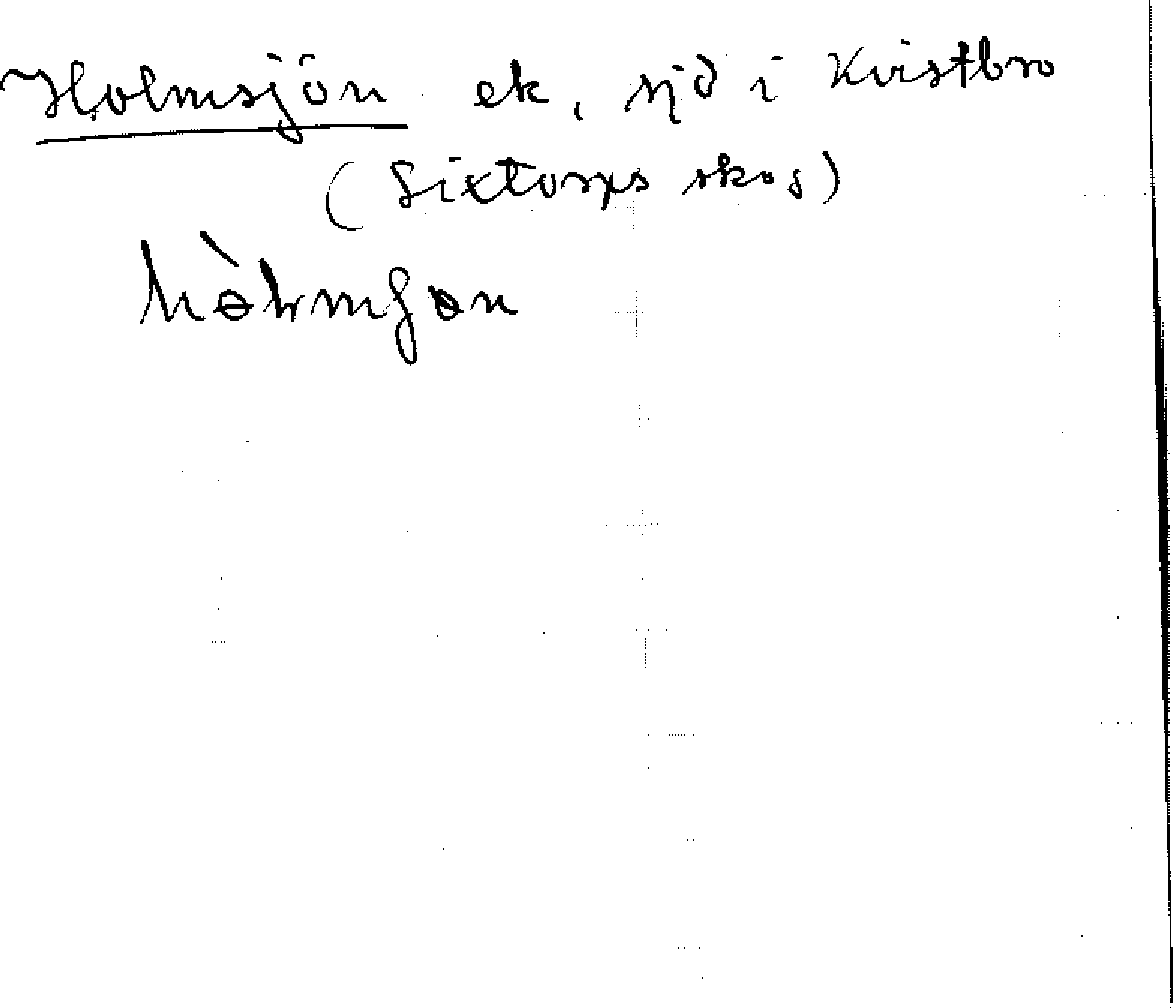 Holmsjön ek, sjö i Kvistbro
(Sixtorps skog)
hòlmʃɵn